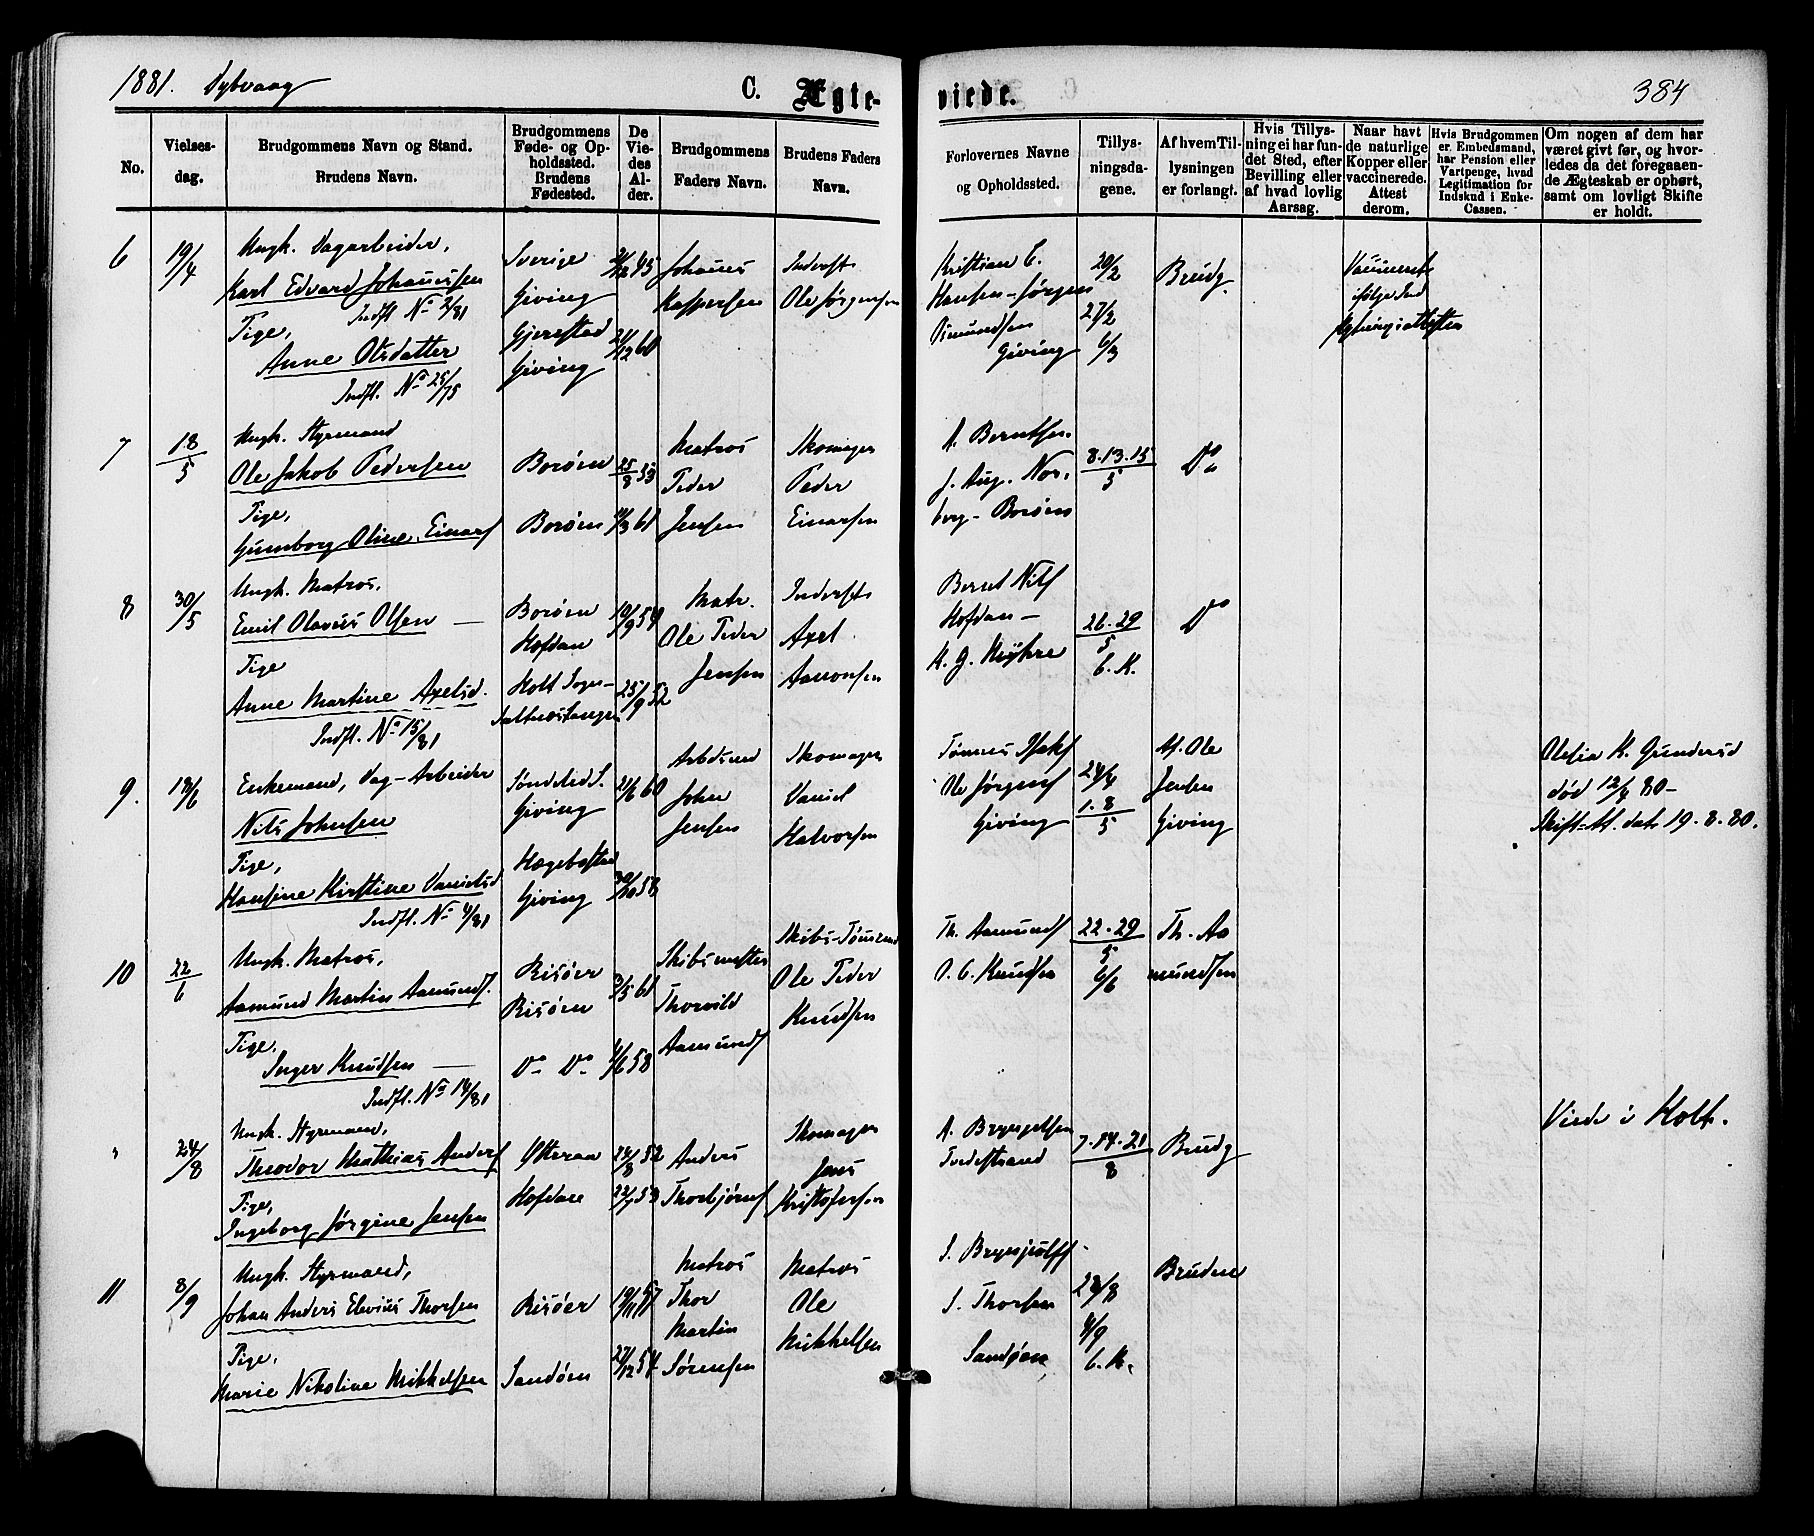 1881. Dybvaag
C. Ægte-
viede.
384
No.
Vielses-
dag.
Brudgommens Navn og Stand.
Brudens Navn.
Brudgommens
Føde- og Op-
holdssted.
Brudens
Fødested.
De
Vie-
des
Al-
der.
Brudgommens
Faders Navn.
Brudens Faders
Navn.
Forlovernes Navne
og Opholdssted.
Tillys-
ningsda-
gene.
Af hvem Til-
lysningen
er forlangt.
Hvis Tillys-
ning ei har fun-
det Sted, efter
Bevilling eller
af hvad lovlig
Aarsag.
Naar havt
de naturlige
Kopper eller
vaccinerede.
Attest
derom.
Hvis Brudgommen
er Embedsmand,
har Pension eller
Vartpenge, hvad
Legitimation for
Indskud i Enke-
Cassen.
Om nogen af dem har
været givt før, og hvor-
ledes da det foregaaen-
de Ægteskab er ophørt,
samt om lovligt Skifte
er holdt.
6
19/4
Ungk. Dagarbeider,
Karl Edvard Johannssen
Indfl. No 2/81
Pige,
Anne Olsdatter
Indfl. No 25/75
Sverige
Giving
Gjerestad
Giving
45
21/12 60
Johanes
Kaspersen
Inderst
Ole Jørgensen
Kristian E.
Hansen - Jørgen
Giving
20/2
27/2
6/3
Brudg.
7
18/5
Ungk. Styrmand
Ole Jakob Pedersen
Pige,
Gunborg Oline Einars
Borøen
Borøen
25/8 53
61
Matros
Peder
Jensen
Skomager
Peder
Einarsen
A. Berntsen
J. Aug. Nor-
berg - Borøen
8. 13. 15/5
Do
8
30/5
Ungk. Matros,
Emil Olavus Olsen
Pige
Anne Martine Axelsd.
Indfl. No 15/81
Borøen
Hofdan
Holt Sogn -
19/9 59
25/9 52
Matr.
Ole Peder
Jensen
Inderst
Axel
Aaronsen
Bernt Nils
Hofdan -
26. 29/5
6. K.
Do
9.
18/6
Enkemand, Dag-Arbeider
Nils Johnsen
Pige,
Hansine Kirstine Danielsd
Indfl. No 4/81
Søndeled S.
Giving
Hægebostad
Giving
21/6 60
30/10 58
Arbdsmd
John
Jensen
Skomager
Daniel
Halvorsen
Ole Jørgens
Giving
24/4
1. 8/5
Af. Ole
Jensen
Giving
Olesia K. Gundersd
død 12/4 80 -
Skift.-Af. dat. 19. 8. 80.
10
22/6
Ungk. Matros,
Aamund Martin Aamunds.
Pige,
Inger Knudsen
Indfl. No 14/81
Risøer
Risøen
Do Do
3/5 61
4/6 58
Skibsmester
Thorvild
Aamunds
Skibs-Tømmrmd
Ole Peder
Knudsen
Th. Aamunds
O. C. Knudsen
22. 29/5
6/6
Th. Aa
mundsen
24/8
Ungk. Styrmand,
Theodor Mathias Anders
Pige,
Ingeborg Jørgine Jensen
Hofdan
24/8 52
53
Anders
Thorbjørns
Skomager
Jens
Kristofersen
Tvedestrand
7. 14. 21/8
Brudg
Viede i Holt.
11
8/9
Ungk. Styrmand,
Johan Anders Elevius Thorsen
Pige,
Marie Nikoline Mikkelsen
Risøer
Sandøen
19/11 57
27/12 54
Matros
Thor
Martin
Sørensen
Matros
Ole
Mikkelsen
S. Brynjulfs
S. Thorsen
Sandøen
28/8
4/9
6. K.
Bruden